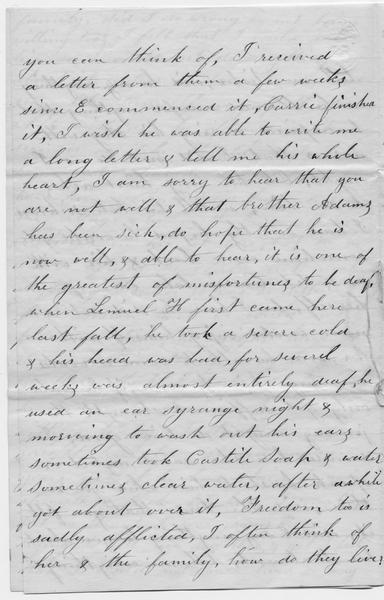 you can think of, I received
a letter from them a few weeks
since E commenced it, Carrie finished
it, I wish he was able to write me
a long letter & tell me his whole
heart, I am sorry to hear that you
are not well & that brother Adams
has been sick, do hope that he is
now well, & able to hear, it is one of
the greatest of misfortunes to be deaf,
when Lemuel H first came here
last fall, he took a severe cold
& his head was bad, for severel
weeks was almost entirely deaf, he
used an ear syrange night &
morning to wash out his ears
sometimes took Castile Soap & water
sometimes clear water, after a while
got about over it, Freedom too is
sadly afflicted, I often think of
her & the family, how do they live?